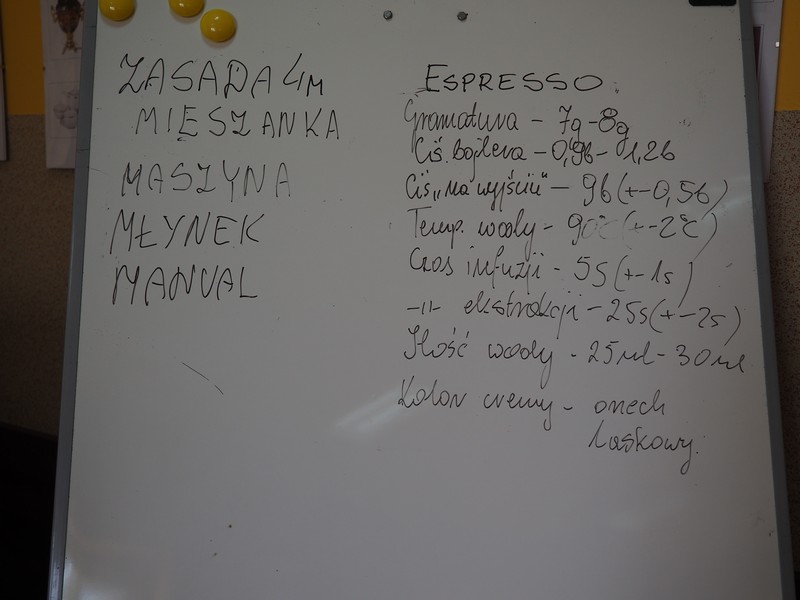 ZASADA 4M
MIESZANKA
MASZYNA
MŁYNEK
MANUAL
ESPRESSO
Gramatura - 7g-8g
Ciś. bojlera - 0,9b - 1,2b
Ciś „na wyjściu" - 9b (+-0,5b)
Temp. wody - 90°C (+-2°C)
Czas infuzji - 5s (+-1s)
-11- ekstrakcji - 25s (+-2s)
Ilość wody - 25ml - 30ml
Kolor cremy - orzech
laskowy.